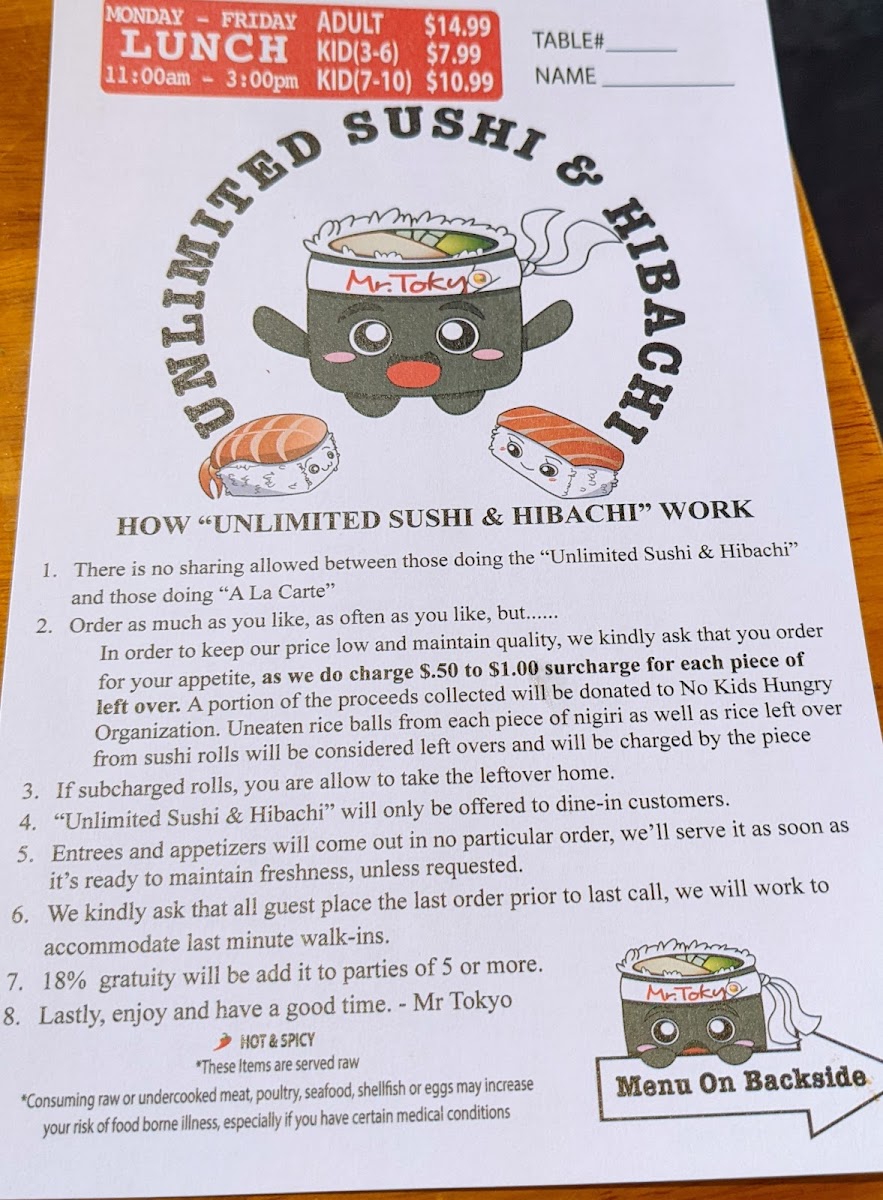 MONDAY - FRIDAY ADULT $14.99
LUNCH KID(3-6) $7.99
11:00am - 3:00pm KID(7-10) $10.99
TABLE#______
NAME ___________
UNLIMITED SUSHI & HIBACHI
Mr.Tokyo
HOW “UNLIMITED SUSHI & HIBACHI” WORK
1. There is no sharing allowed between those doing the “Unlimited Sushi & Hibachi”
and those doing “A La Carte”
2. Order as much as you like, as often as you like, but......
In order to keep our price low and maintain quality, we kindly ask that you order
for your appetite, as we do charge $.50 to $1.00 surcharge for each piece of
left over. A portion of the proceeds collected will be donated to No Kids Hungry
Organization. Uneaten rice balls from each piece of nigiri as well as rice left over
from sushi rolls will be considered left overs and will be charged by the piece
3. If subcharged rolls, you are allow to take the leftover home.
4. “Unlimited Sushi & Hibachi” will only be offered to dine-in customers.
5. Entrees and appetizers will come out in no particular order, we’ll serve it as soon as
it’s ready to maintain freshness, unless requested.
6. We kindly ask that all guest place the last order prior to last call, we will work to
accommodate last minute walk-ins.
7. 18% gratuity will be add it to parties of 5 or more.
8. Lastly, enjoy and have a good time. - Mr Tokyo
HOT & SPICY
*These Items are served raw
*Consuming raw or undercooked meat, poultry, seafood, shellfish or eggs may increase
your risk of food borne illness, especially if you have certain medical conditions
Mr.Tokyo
Menu On Backside